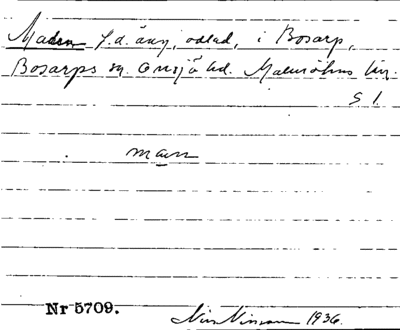 Maden f.d. äng, odlad, i Bosarp,
Bosarps sn. Onsjö hd. Malmöhus län.
S 1.
marn
Nr 5709.
Nils Nilsson 1936.